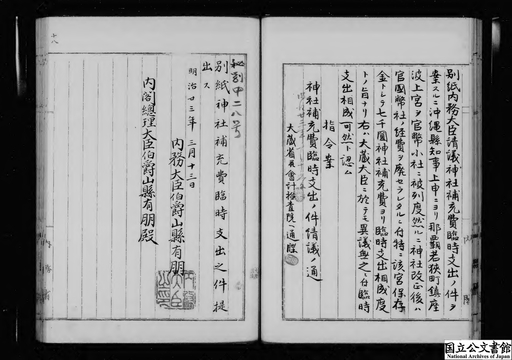 別紙内務大臣請議神社補充費臨時支出ノ件ヲ
案スルニ沖縄県知事上申ニヨリ那覇若狭町鎮座
波上宮ヲ官幣小社ニ被列度然ルニ神社改正後ハ
官国幣社ノ経費ヲ廃セラレタルニ付特ニ該宮保存
金トシテ七千圓神社補充費ヨリ臨時支出相成度
トノ旨ナリ右ハ大蔵大臣ニ於テモ異議無之ニ付臨時
支出相成可然ト認ム
指令案
神社補充費臨時支出ノ件請議ノ通
大蔵省及会計検査院ヘ通牒
秘別甲二八号
別紙神社補充費臨時支出之件提
出ス
明治廿三年三月十三日
内務大臣伯爵山縣有朋
内閣總理大臣伯爵山縣有朋殿
国立公文書館
National Archives of Japan